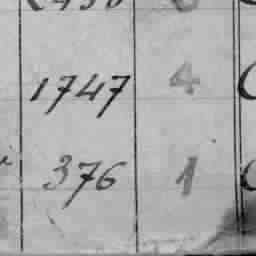 1747 4
376 1